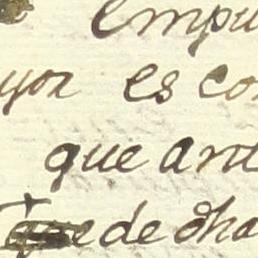 empu
yor es con
que ant
que de dha